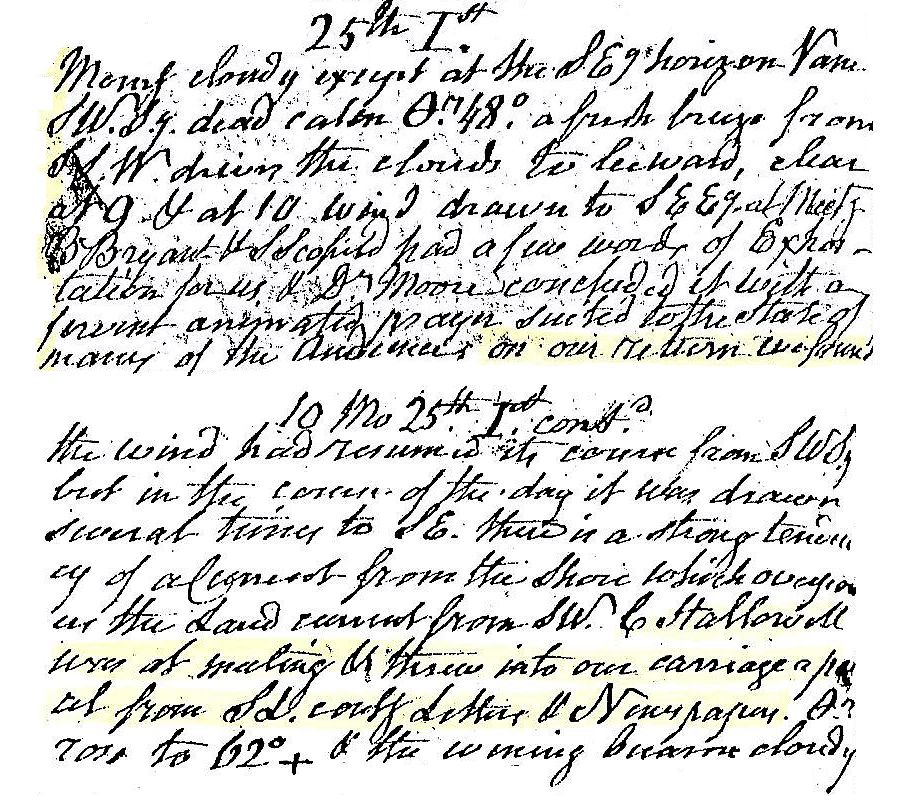 25th I.st
Morng cloudy except at the SEy horizon Vane
SW.Sy. dead calm 48° a fresh breeze from
S.W. driven the clouds to leeward, clear
at 9 & at 10 wind drawn to SEEy. at Meetg
B Bryant & S Scofield had a few words of Exhor-
tation for us & Dr Moore concluded it with a
fervent animated prayer suited to the State of
many of the Audiences on our return we found
10 Mo 25th I.st cont.d
the wind had resumed its course from SWSy
but in the course of the day it was drawn
several times to SE. there is a strong tenden
cy of a Current from the Shore which occasion
es the Land current from SW. C Hallowell
was at meeting & threw into our carriage a par
cel from SL. contg Letters & Newspapers.
rose to 62°+ & the evening became cloudy